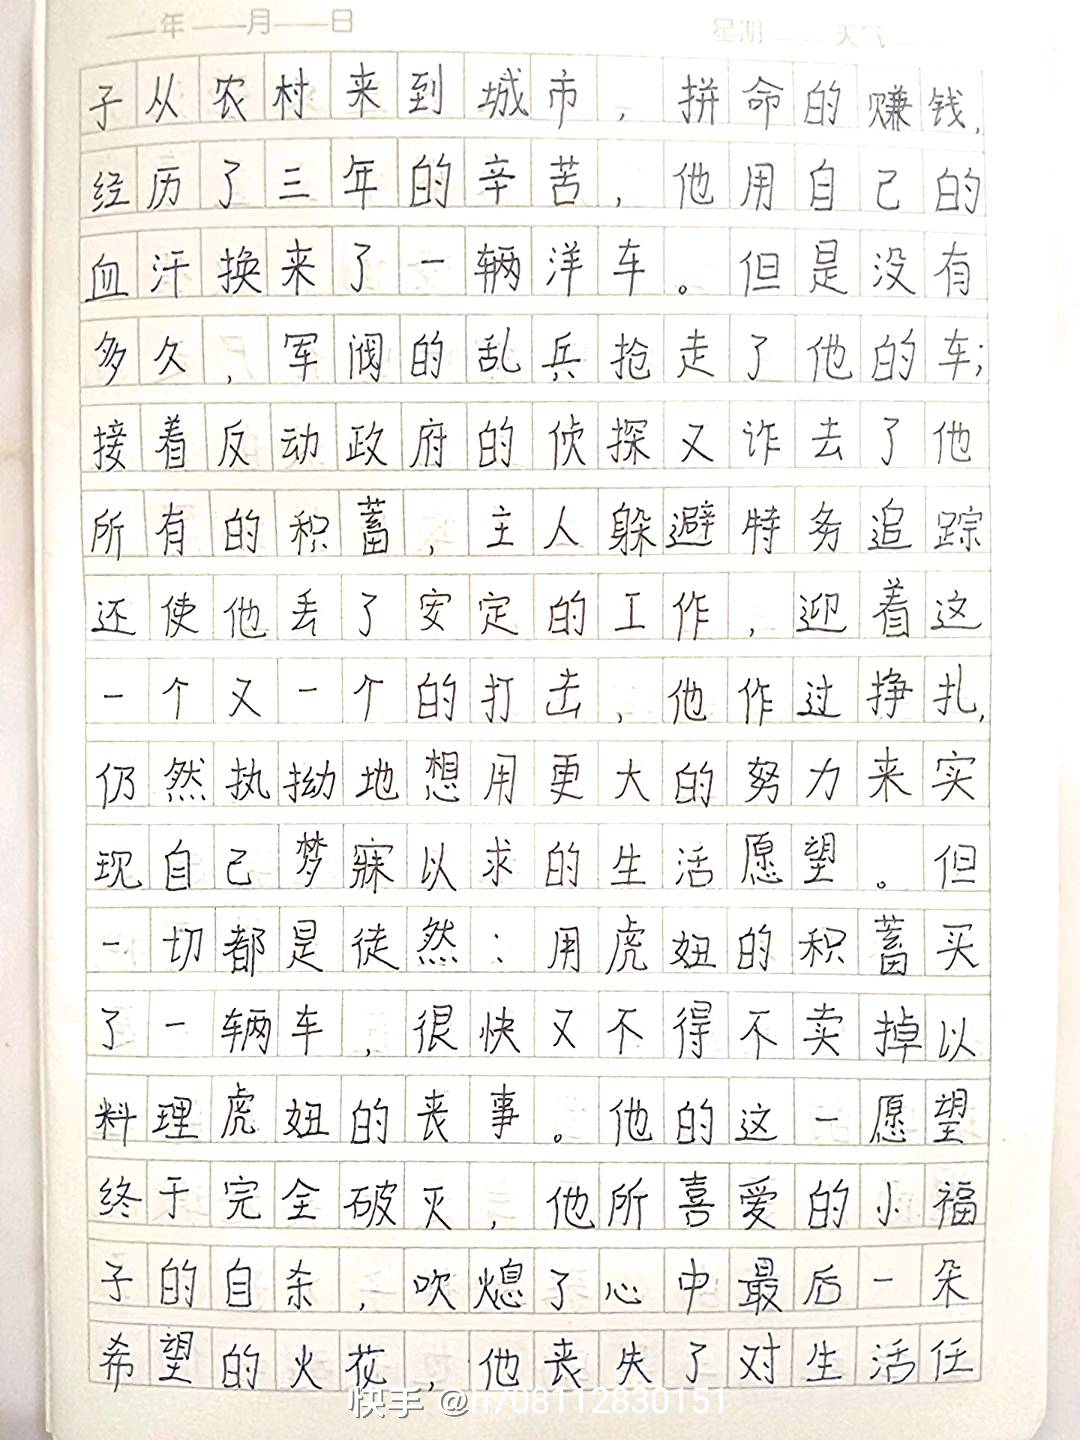 年 月 日 星期 天气
子从农村来到城市，拼命的赚钱，
经历了三年的辛苦，他用自己的
血汗换来了一辆洋车。但是没有
多久，军阀的乱兵抢走了他的车；
接着反动政府的侦探又诈去了他
所有的积蓄，主人躲避特务追踪
还使他丢了安定的工作，迎着这
一个又一个的打击，他作过挣扎，
仍然执拗地想用更大的努力来实
现自己梦寐以求的生活愿望。但
一切都是徒然：用虎妞的积蓄买
了一辆车，很快又不得不卖掉以
料理虎妞的丧事。他的这一愿望
终于完全破灭，他所喜爱的小福
子的自杀，吹熄了心中最后一朵
希望的火花，他丧失了对生活任
快手 @n708112830151